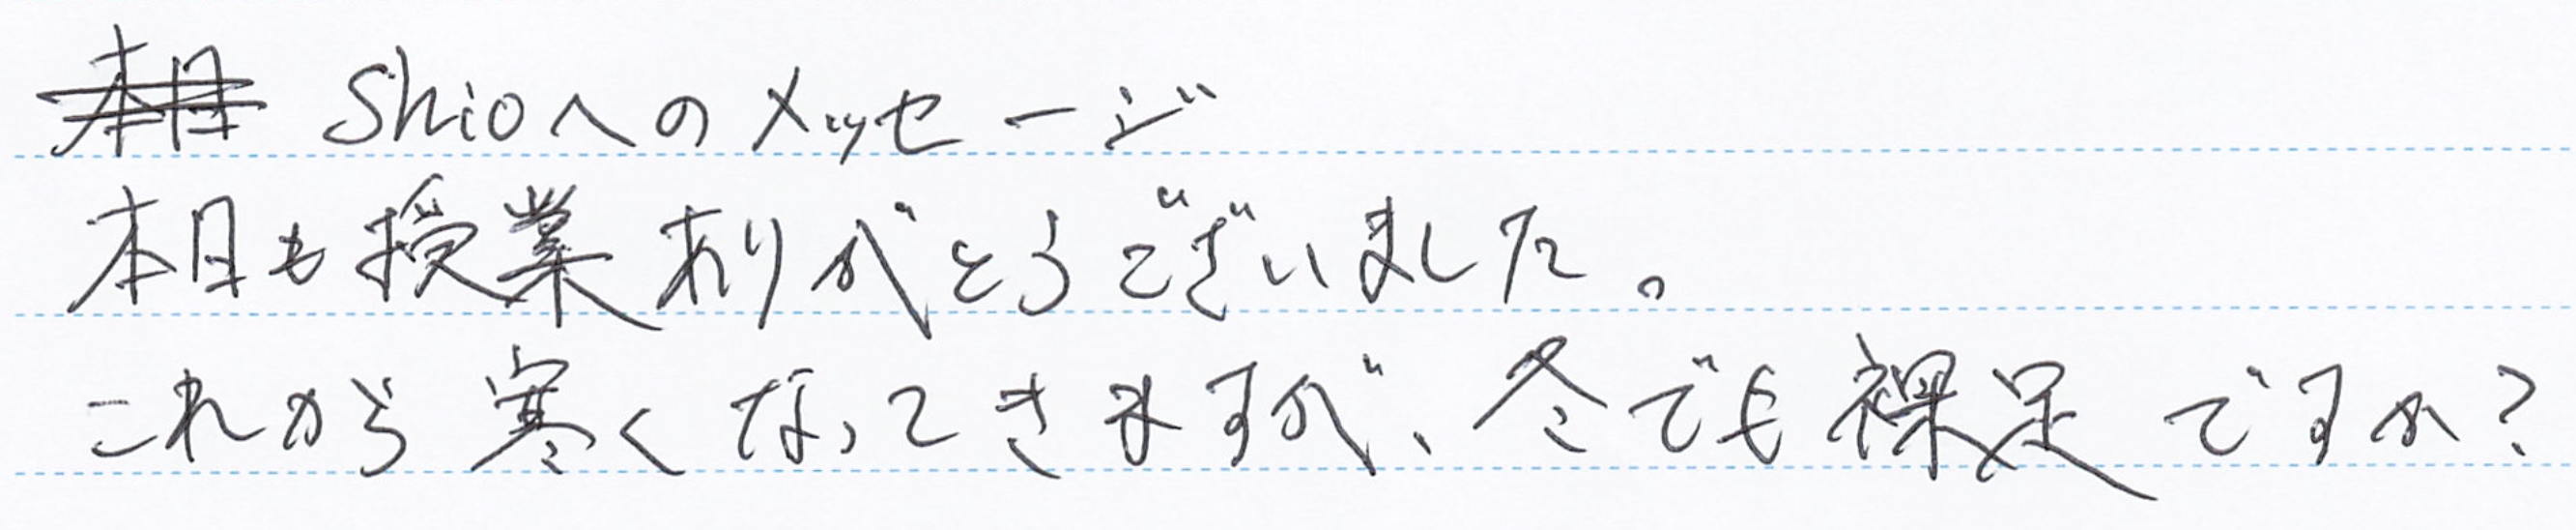 本日 Shioへのメッセージ
本日も授業ありがとうございました。
これから寒くなってきますが、冬でも裸足ですか?